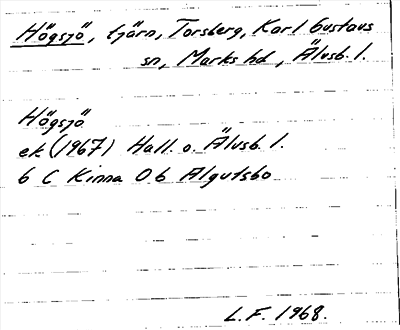 Högsjö, tjärn, Torsberg, Karl Gustavs
sn, Marks hd, Älvsb. l.
Högsjö
ek (1967) Hall. o. Älvsb. l.
6 C Kinna 0 b Algutsbo
L.F. 1968.